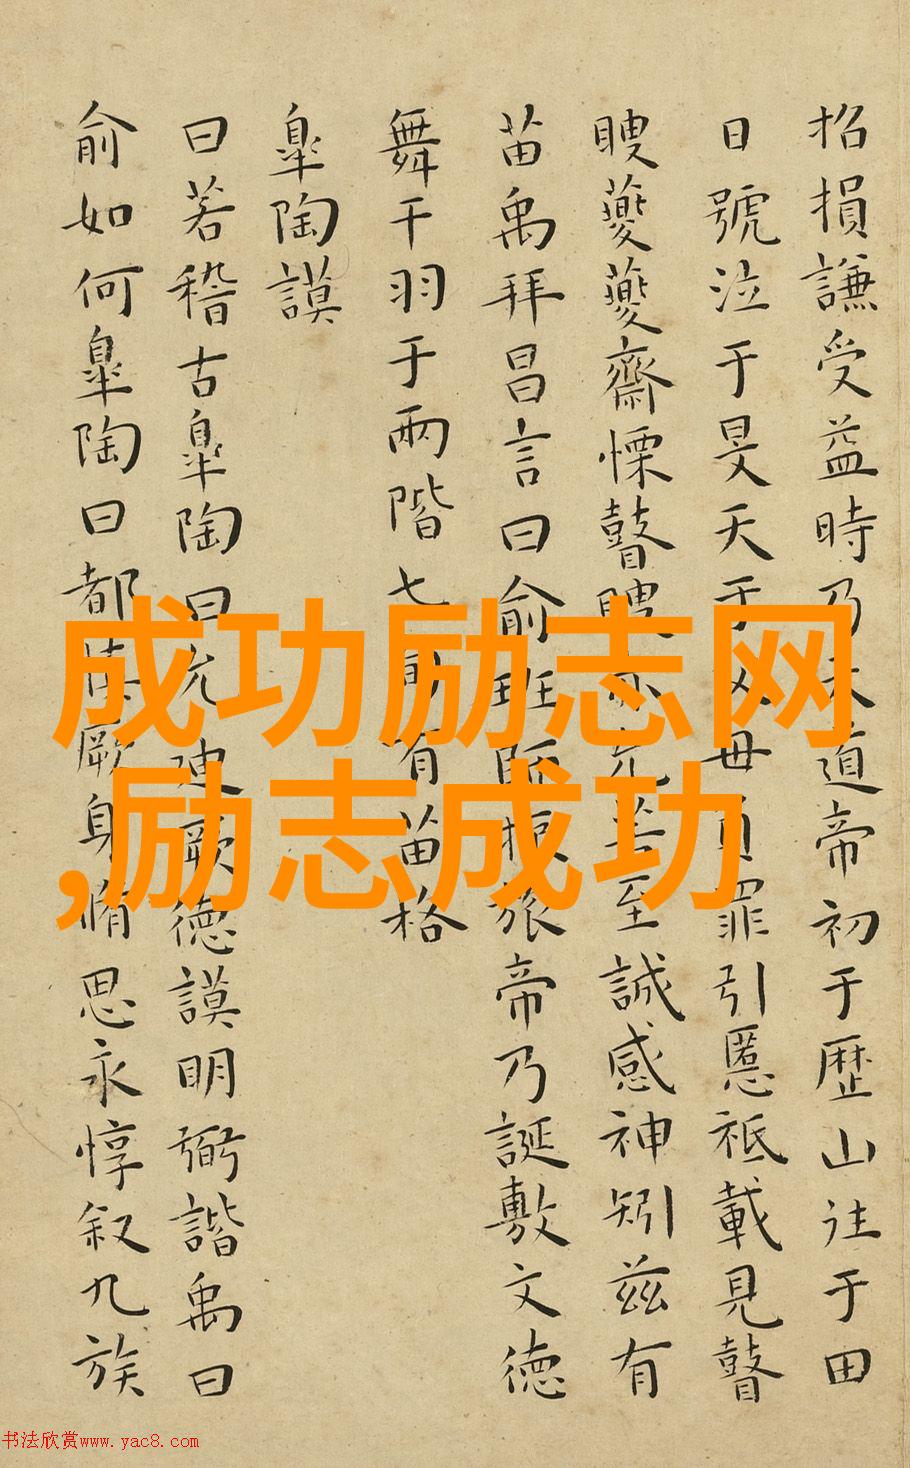 招損謙受益時乃天道帝初于歷山往于田
日號泣于旻天于父母負罪引慝祗載見瞽
瞍夔夔齋慄瞽瞍亦允若至誠感神矧茲有
苗禹拜昌言曰俞班師振旅帝乃誕敷文德
舞干羽于兩階七旬有苗格
臯陶謨
曰若稽古臯陶曰允迪厥德謨明弼諧禹曰
俞如何臯陶曰都慎厥身脩思永惇叙九族
成功励志网
,励志成功
书法欣赏www.yac8.com